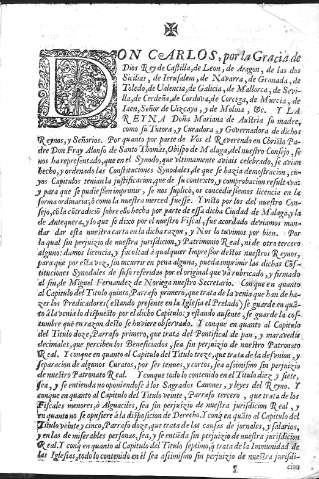 DON CARLOS, por la Gracia de
Dios Rey de Castilla, de Leon, de Aragon, de las dos
Sicilias, de Ierusalem, de Navarra, de Granada, de
Toledo, de Valencia, de Galicia, de Mallorca, de Sevi-
lla, de Cerdeña, de Cordova, de Corcega, de Murcia, de
Iaen, Señor de Vizcaya, y de Molina, &c. Y LA
REYNA Doña Mariana de Austria su madre,
como su Tutora, y Curadora, y Governadora de dichos
Reynos, y Señorios. Por quanto por parte de Vos el Reverendo en Christo Pa-
dre Don Fray Alonso de Santo Thomàs, Obispo de Malaga, del nuestro Consejo, se
nos ha representado, que en el Synodo, que vltimamente aviais celebrado, se avian
hecho, y ordenado las Constituciones Synodales, de que se hazia demostracion, cu-
yos Capitulos tenian la justificacion, que de su contexto, y comprobacion resultava:
y para que se pudiessen imprimir, se nos suplicò, os concediessemos licencia en la
forma ordinaria, ò como la nuestra merced fuesse. Y visto por los del nuestro Con-
sejo, con lo contradicho sobre ello hecho por parte de essa dicha Ciudad de Malaga, y la
de Antequera, y lo que se dixo por el nuestro Fiscal, fue acordado deviamos man-
dar dar esta nuestra carta en la dicha razon, y Nos lo tuvimos por bien. Por
la qual sin perjuizio de nuestra jurisdicion, y Patrimonio Real, ni de otro tercero
alguno: damos licencia, y facultad à qualquier Impressor destos nuestros Reynos,
para que por esta vez, sin incurrir en pena alguna, pueda imprimir las dichas Cõs-
tituciones Synodales de suso referidas por el original que và rubricado, y firmado
al fin, de Miguel Fernandez de Noriega nuestro Secretario. Conque en quanto
al Capitulo del Titulo quinto, Parrafo primero, que trata de la venia que han de ha-
zer los Predicadores (estando presente en la Iglesia el Prelado) se guarde en quã-
to à la venia lo dispuesto por el dicho Capitulo; y estando ausente, se guarde la cos-
tumbre que en razon desto se huviere observado. Y conque en quanto al Capitulo
del Titulo doze, Parrafo primero, que trata del Pontifical de pan, y maravedis
decimales, que perciben los Beneficiados, sea sin perjuizio de nuestro Patronato
Real. Y conque en quanto al Capitulo del Titulo treze, que trata de la desunion, y
separacion de algunos Curatos, por sus tenues, y cortos, sea assimismo sin perjuizio
de nuestro Patronato Real. Y conque todo lo contenido en el Titulo diez y siete,
sea, y se entienda no oponiendose à los Sagrados Canones, y leyes del Reyno. Y
conque en quanto al Capitulo del Titulo veinte, Parrafo tercero, que trata de los
Fiscales menores, ò Alguaciles, sea sin perjuizio de nuestra jurisdicion Real, y
en quanto no se opusiere à la disposicion de Derecho. Y conq̃ en quãto al Capitulo del
Titulo veinte y cinco, Parrafo doze, que trata de las causas de jornales, y salarios,
y en las de miserables personas, sea, y se entiẽda sin perjuizio de nuestra jurisdicion
Real. Y conq̃ en quanto al Capitulo del Titulo septimo, q̃ trata de la Inmunidad de
las Iglesias, todo lo contenido en èl sea assimismo sin perjuizio de nuestra jurisdi-
cion